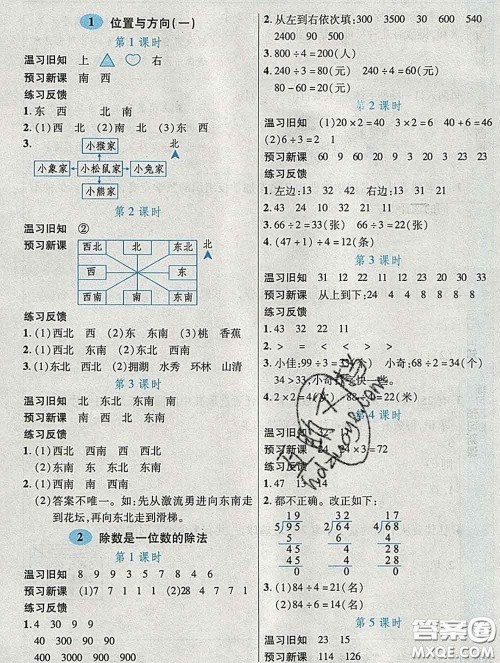 1 位置与方向(一)
第1课时
温习旧知 上 右
预习新课 南 西
练习反馈
1. 东 西 北 北 南
2. (1)西 北 (2)南 北 (3)东 西
3.
小猴家 北
小象家 小松鼠家 小兔家
小熊家
第2课时
温习旧知 ②
预习新课
西北 北 东北 北
西 东
西南 南 东南
练习反馈
1. (1)西北 西 (2)东 东南 (3)桃 香蕉
2. (1)西北 东北 (2)拥湖 水秀 环林 山清
第3课时
温习旧知 北 北 东南 南
预习新课
练习反馈
1. 东 东南 东 东北
2. (1)西南 西 西北
(2)答案不唯一。如:先从激流勇进向东南走
到花坛,再向东北走到滑梯。
2 除数是一位数的除法
第1课时
温习旧知 8 9 9 3 5 7 8 9 4 6
预习新课 (1)7 7 1 1 1 (2)2 8 4 7 7 1
练习反馈
1. 4 30 9 9
40 300 90 90
400 3000 900 900
2. 从左到右依次填: 300 600 500 400
2400 90 500
3. 800÷4=200(元)
4. 240÷3=80(元) 240÷4=60(元)
80-60=20(元)
第2课时
温习旧知 (1)20×2=40 3×2=6 40+6=46
(2)6÷3=2 1
预习新课 60 9 60 9 20 3 20 3 23
练习反馈
1. 左边: 13 32 42 右边 43 21 13 21
2. 43 24 10 42 32 21 11
3. 66÷2=33(张) 66÷3=22(张)
4. (47+1)÷4=12(个)
第3课时
温习旧知 31 12 22 11 23 20 30 33
预习新课 从上到下: 24 4 4 8 8 8
练习反馈
1. 43 32 22 11
2. > = < < > =
3. 小佳: 99÷3= 小奇: 68÷2=34(个)
34>33,小奇
第4课时
温习旧知
预习新课
练习反馈
1. 47 13 14
2. 都不正确。改正如下:
19 32 17
5 95 2 64 4 68
5 6 4
45 4 28
45 4 28
0 0 0
3. (1)84÷4=21(名)
(2)84÷3=28(名)
第5课时
温习旧知 23 15
预习新课 114 124 126
答案圈
MXQE.COM